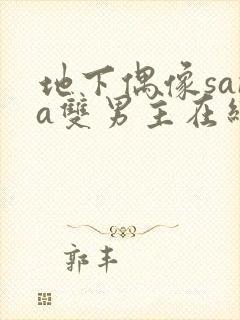 地下偶像sa
a雙男主在
郭丰